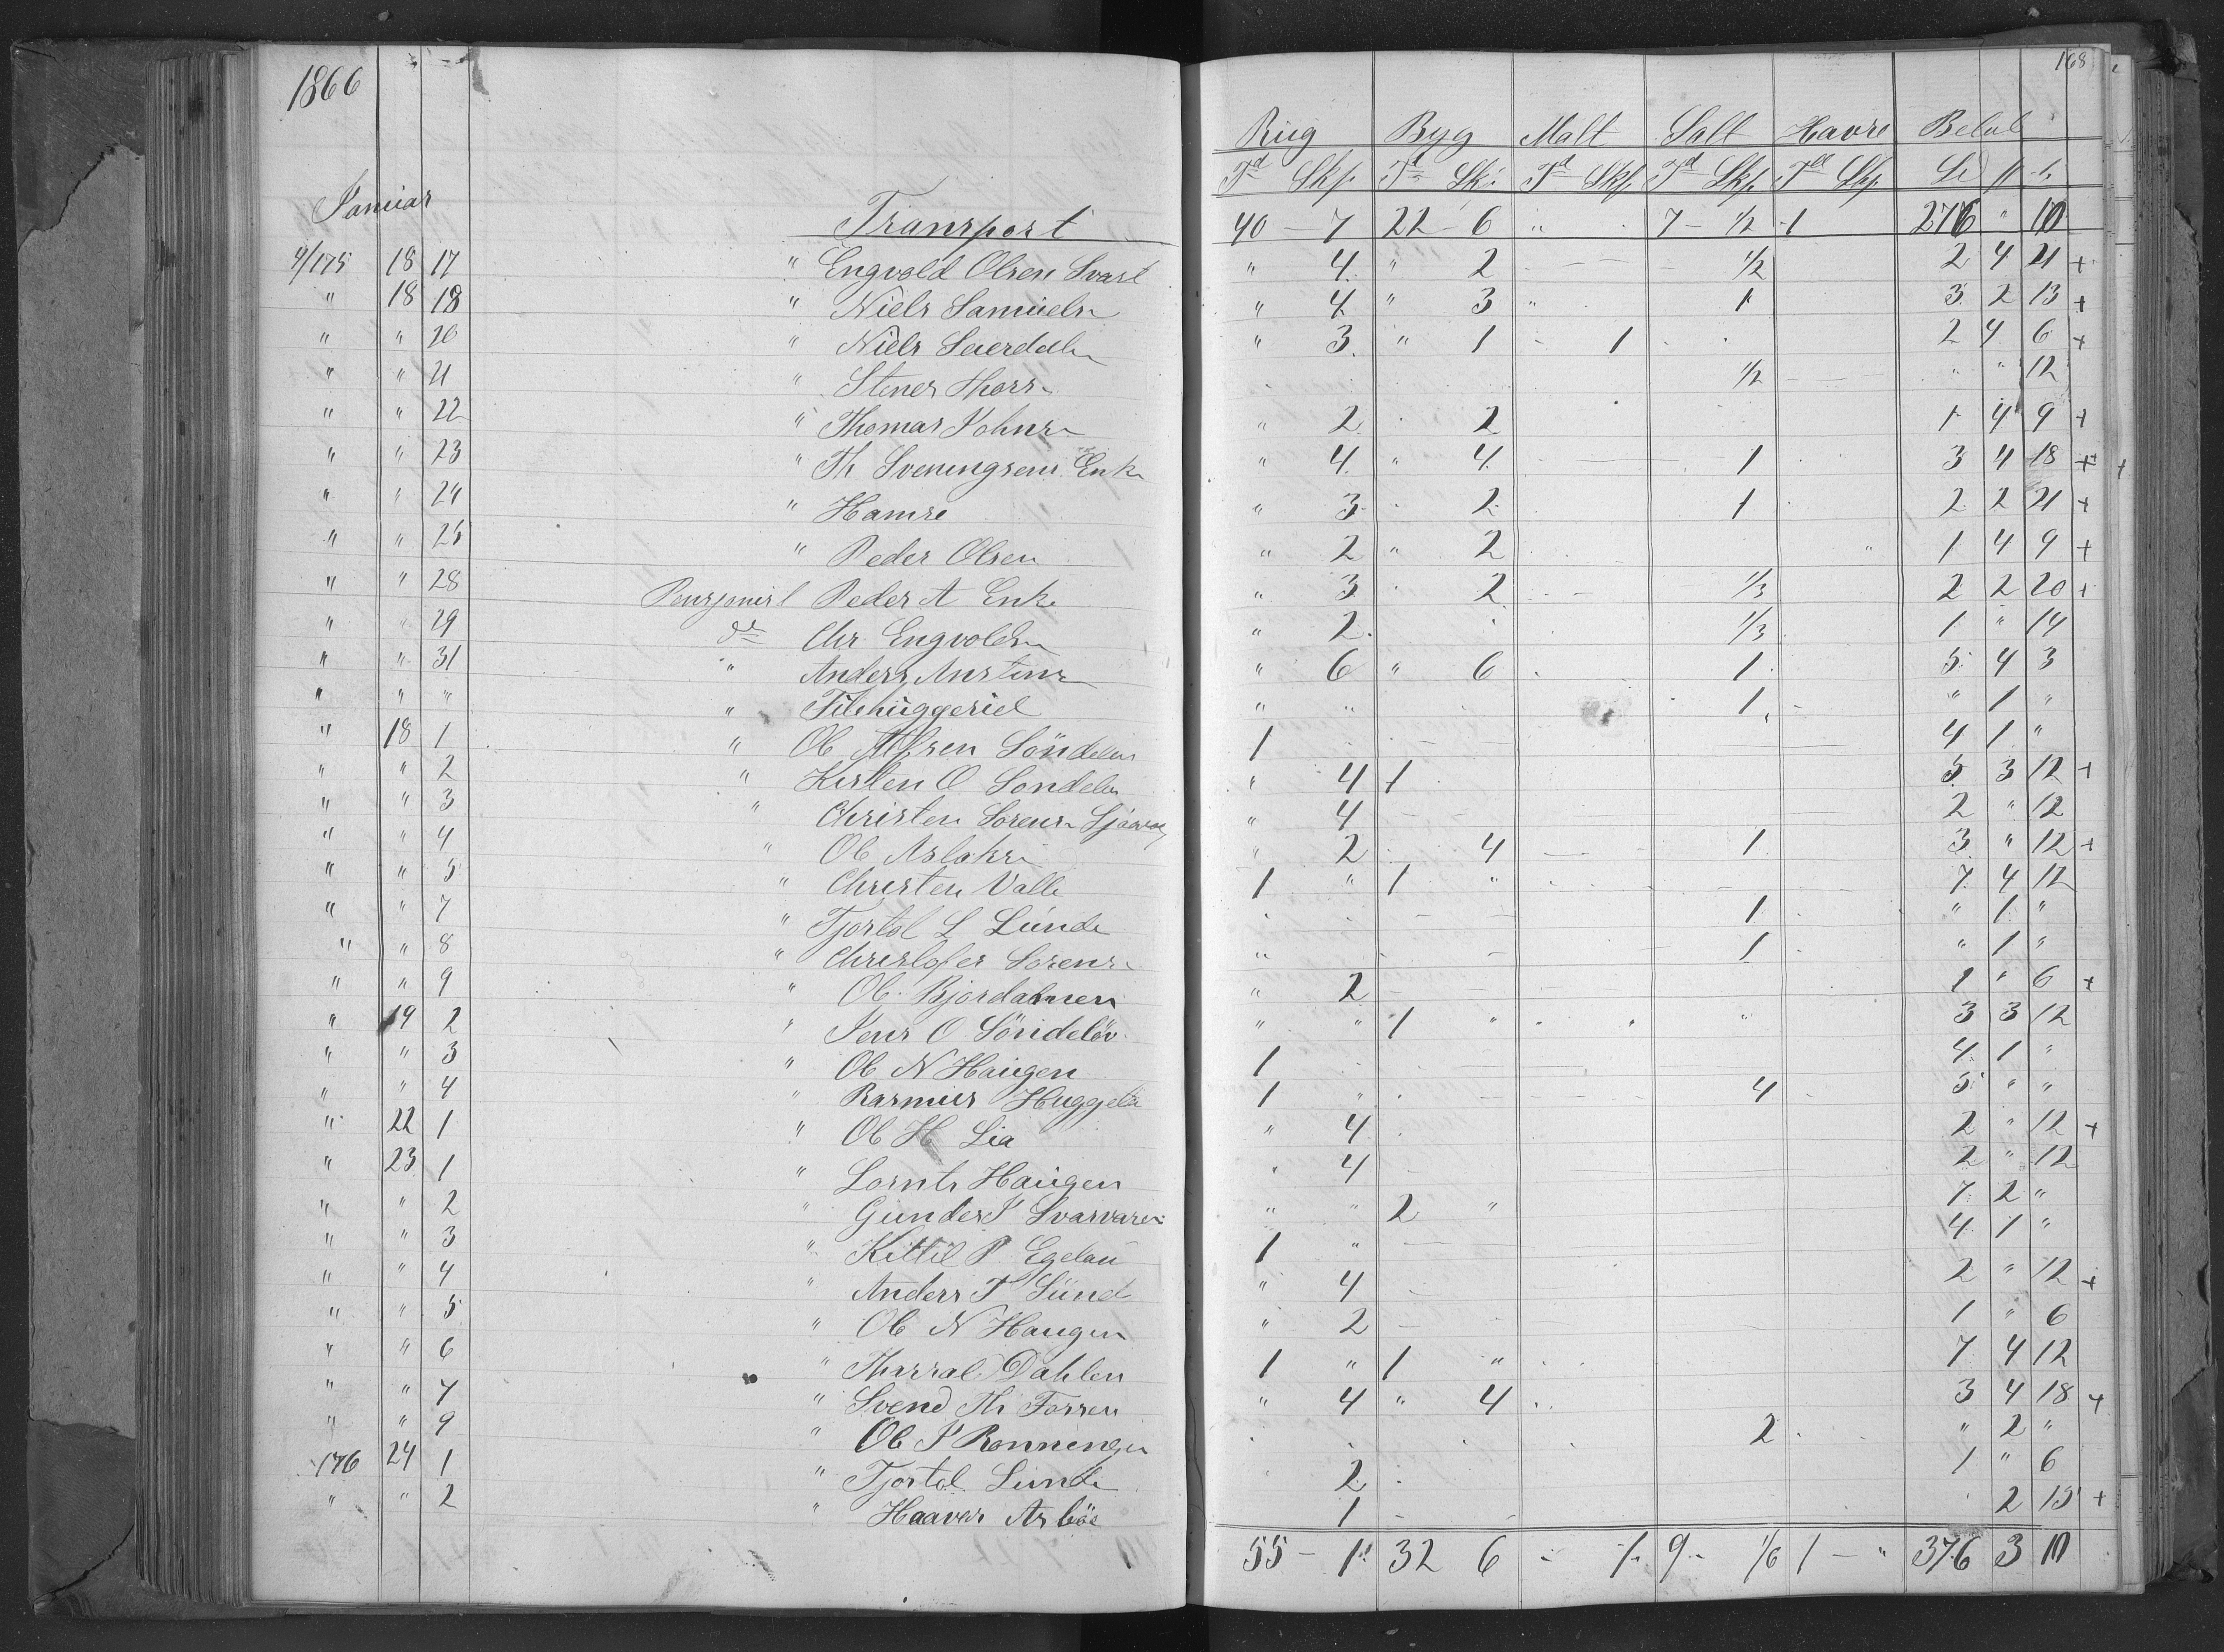 1866 168
Rug Byg Malt Salt Havre Beløb
Td Skp. Td Skp. Td Skp. Td Skp. Td Skp.
Januar
Transport 40 – 7 22 – 6 " 7 – 1/2 1 276 " 10
4/175 18 17 " Engvold Olsen Svart " 4 " 2 1/2 2 4 21 +
" 18 18 " Niels Samuels " 4 " 3 " 1 3 2 13 +
" " 20 " Niels " 3 " 1 1 2 4 6 +
" " 21 " Stener Thors 1/2 " " 12
" " 22 " Thomas Johns " 2 2 1 4 9 +
" " 23 " Th Sveningsens Enke " 4 " 4 1 3 4 18 +
" " 24 " Hamre " 3 2 1 2 2 21 +
" " 25 " Peder Olsen " 2 " 2 1 4 9 +
" " 28 Peder A Enke " 3 2 1/3 2 2 20 +
" " 29 do Chr. Engvolds " 2 1/3 1 " 14
" " 31 " Anders " 6 " 6 1 5 4 3
" " " " Filehuggeriet " " 1 " 1 "
" 18 1 " Ol Søndeløv 1 4 1 "
" " 2 " Kisten O Søndeløv " 4 1 5 3 12 +
" " 3 " Christen Sorens " 4 2 " 12
" " 4 " Ol Aslaks " 2 4 1 3 " 12 +
" " 5 " Christen Valle 1 " 1 " 7 4 12
" " 7 " Tjostol L Lunde 1 " 1 "
" " 8 " Christofer Sorens 1 " 1 "
" " 9 " Ol. Bjordalmen " 2 1 " 6 +
" 19 2 " Jens O Søndeløv " " 1 " " 3 3 12
" " 3 " Ol N Haugen 1 4 1 "
" " 4 " Rasmus 1 " 4 5 " "
" 22 1 " Ol H Lia " 4 2 " 12 +
" 23 1 " Lornts Haugen " 4 2 " 12
" " 2 " Gunder " " 2 " 7 2 "
" " 3 " Kittil P Egeland 1 " 4 1 "
" " 4 " Anders T Sund " 4 2 " 12 +
" " 5 " Ol N Haugen " 2 1 " 6
" " 6 " Dahlen 1 " 1 " 7 4 12
" " 7 " Svend Th " 4 " 4 3 4 18 +
" " 9 " Ol Ronningen 2 " 2 "
176 24 1 " Tjostol Lunde 2 1 " 6
" " 2 " Haaver 1 2 15 +
55 – 1 32 6 1 9 1/6 1 – " 376 3 10